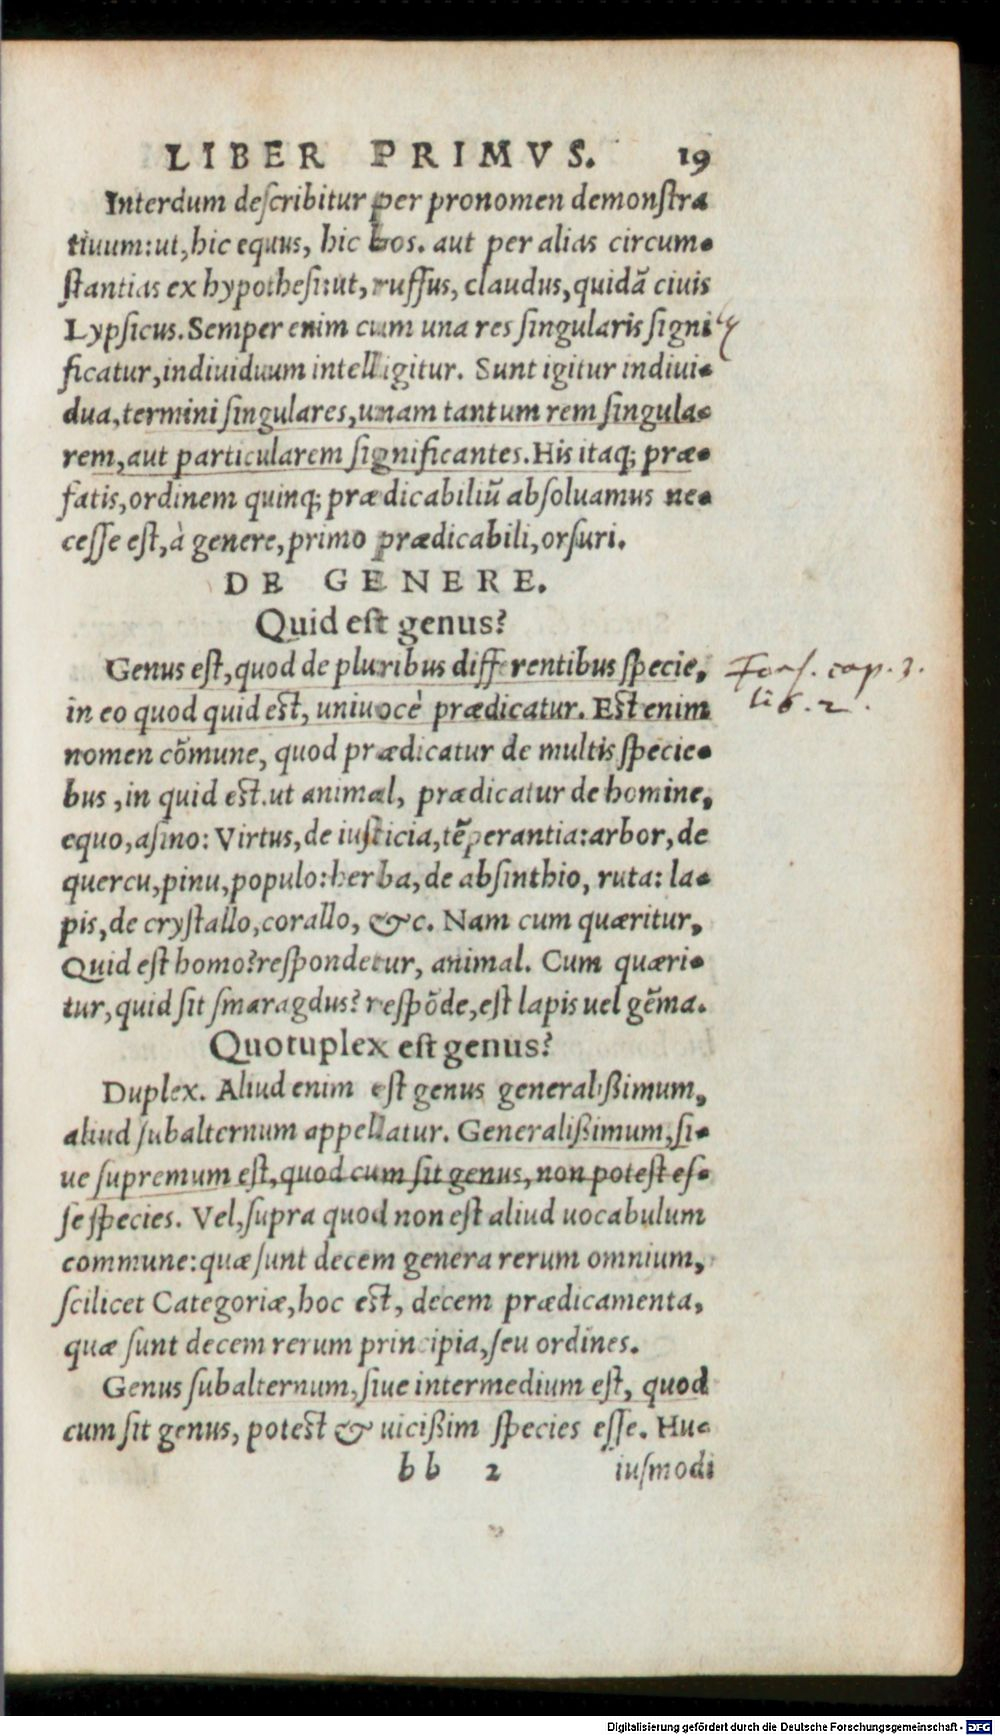 LIBER PRIMVS. 19
Interdum deſcribitur per pronomen demonſtra
tiuum: ut, hic equus, hic bos. aut per alias circum-
ſtantias ex hypotheſi: ut, ruffus, claudus, quidã ciuis
Lypſicus. Semper enim cum una res ſingularis ſigni
ficatur, indiuiduum intelligitur. Sunt igitur indiui-
dua, termini ſingulares, unam tantum rem ſingula-
rem, aut particularem ſignificantes. His itaq; præ-
fatis, ordinem quinq; prædicabiliũ abſoluamus ne-
ceſſe eſt, à genere, primo prædicabili, orſuri.
DE GENERE.
Quid eſt genus?
Genus eſt, quod de pluribus differentibus ſpecie, cap. 3.
in eo quod quid eſt, uniuocè prædicatur. Eſt enim lib. 2.
nomen cõmune, quod prædicatur de multis ſpecie-
bus, in quid eſt. ut animal, prædicatur de homine,
equo, aſino: Virtus, de iuſticia, tẽperantia: arbor, de
quercu, pinu, populo: herba, de abſinthio, ruta: la-
pis, de cryſtallo, corallo, &c. Nam cum quæritur,
Quid eſt homo? reſpondetur, animal. Cum quæri-
tur, quid ſit ſmaragdus? reſpõde, eſt lapis uel gẽma.
Quotuplex eſt genus?
Duplex. Aliud enim eſt genus generalißimum,
aliud ſubalternum appellatur. Generalißimum, ſi-
ue ſupremum eſt, quod cum ſit genus, non poteſt eſ-
ſe ſpecies. Vel, ſupra quod non eſt aliud uocabulum
commune: quæ ſunt decem genera rerum omnium,
ſcilicet Categoriæ, hoc eſt, decem prædicamenta,
quæ ſunt decem rerum principia, ſeu ordines.
Genus ſubalternum, ſiue intermedium eſt, quod
cum ſit genus, poteſt & uicißim ſpecies eſſe. Hu-
bb 2 iuſmodi
Digitalisierung gefördert durch die Deutsche Forschungsgemeinschaft - DFG